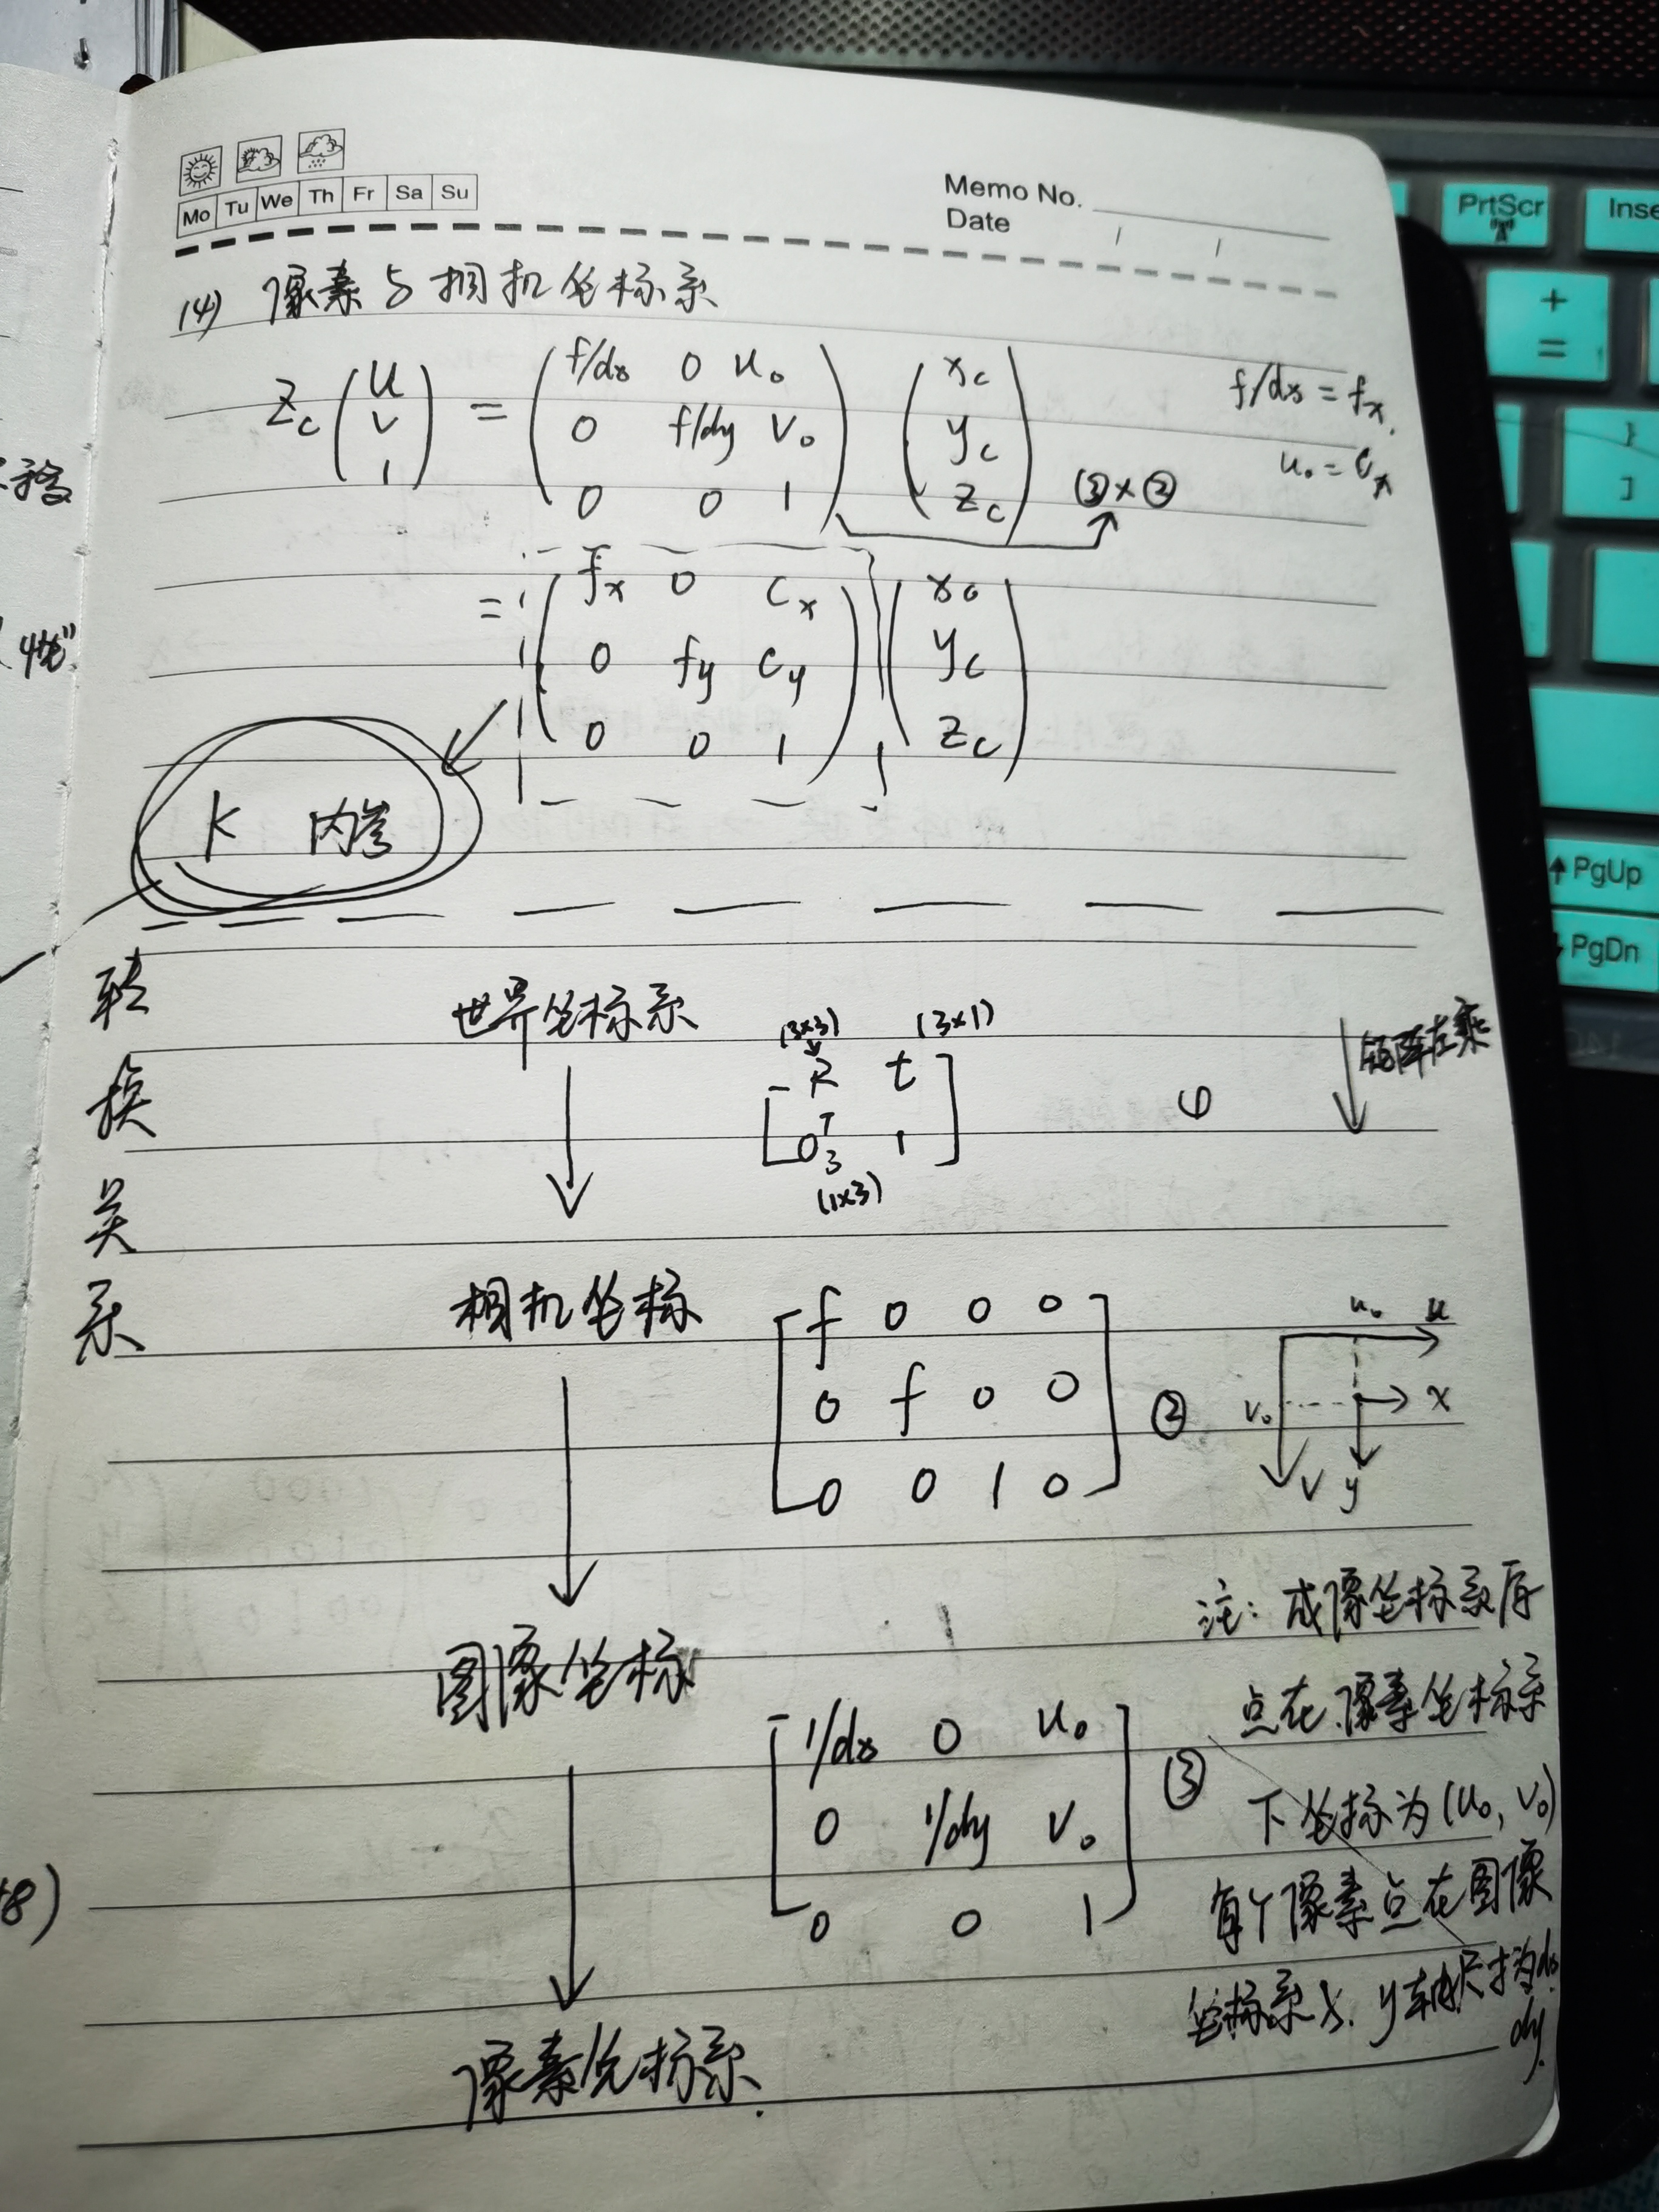 Mo Tu We Th Fr Sa Su
Memo No.
Date / /
(4) 像素与相机坐标系
Zc (u v 1) = (f/dx 0 u₀ 0 f/dy v₀ 0 0 1) (xc yc zc)
f/dx = fx,
u₀ = Cx
③×②
= (fx 0 cx 0 fy cy 0 0 1) (xc yc zc)
K 内参
转换关系
世界坐标系
(3×3) (3×1)
R t
0₃ᵀ 1
(1×3)
矩阵左乘
相机坐标
f 0 0 0
0 f 0 0
0 0 1 0
②
u₀ u
v₀ x
v y
图像坐标
1/dx 0 u₀
0 1/dy v₀
0 0 1
③
注: 成像坐标系原
点在像素坐标系
下坐标为(u₀, v₀)
每个像素点在图像
坐标系x. y轴尺寸为dx
dy.
像素坐标系.
+8)
PrtScr
Inse
+
=
}
]
PgUp
PgDn